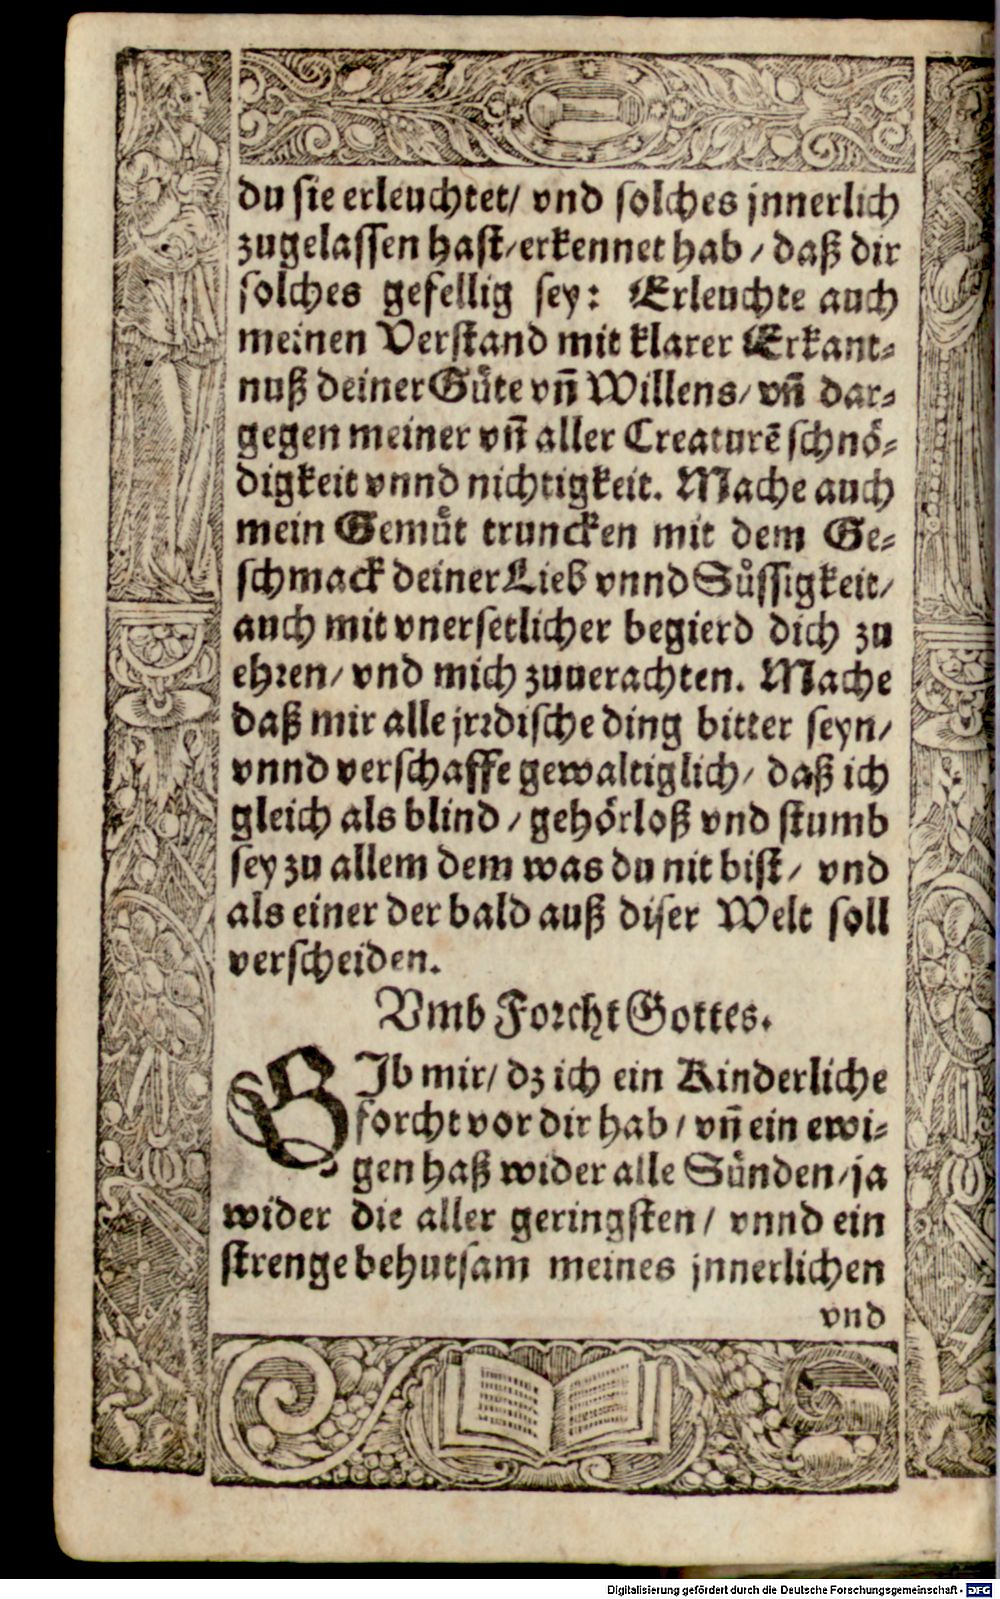 du sie erleuchtet/ vnd solches jnnerlich
zugelassen hast/erkennet hab/ daß dir
solches gefellig sey: Erleuchte auch
meinen Verstand mit klarer Erkant-
nuß deiner Guͤte vñ Willens/ vñ dar-
gegen meiner vñ aller Creaturẽ schnoͤ-
digkeit vnnd nichtigkeit. Mache auch
mein Gemuͤt truncken mit dem Ge-
schmack deiner Lieb vnnd Suͤssigkeit/
auch mit vnersetlicher begierd dich zu
ehren/ vnd mich zuuerachten. Mache
daß mir alle jrrdische ding bitter seyn/
vnnd verschaffe gewaltiglich/ daß ich
gleich als blind/ gehoͤrloß vnd stumb
sey zu allem dem was du nit bist/ vnd
als einer der bald auß diser Welt soll
verscheiden.
Vmb Forcht Gottes.
GIb mir/ dz ich ein Kinderliche
forcht vor dir hab/ vñ ein ewi-
gen haß wider alle Suͤnden/ja
wider die aller geringsten/ vnnd ein
strenge behutsam meines jnnerlichen
vnd
Digitalisierung gefördert durch die Deutsche Forschungsgemeinschaft - DFG